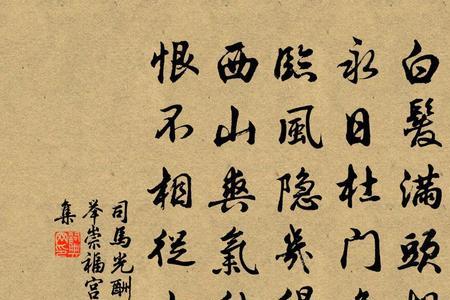 白髮滿頭
永日杜門
臨風隐幾得
西山爽氣
恨不相從
司馬光酬
舉崇福宮
集